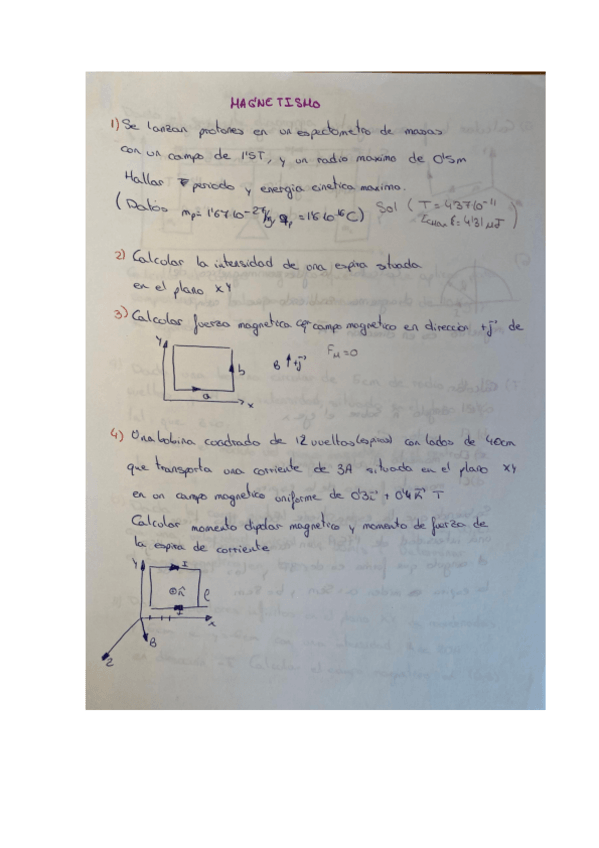 MAGNETISMO
1) Se lanzan protones en un espectometro de masas
con un campo de 1'5T, y un radio maximo de 0'5m
Hallar periodo y energia cinetica maxima.
(Datos mp= 1'67·10⁻²⁷ kg, qp = 1'6·10⁻¹⁶C) Sol ( T = 4'37·10⁻¹¹
= 4'31 µJ )
2) Calcolar la intensidad de una espira situada
en el plano XY
3) Calcolar fuerza magnetica campo magnetico en direccion +j⃗ de
Y
B +j⃗
F_M = 0
b
a
x
4) Una bobina cuadrado de 12 vueltas (espiras) con lados de 40cm
que transporta una corriente de 3A situada en el plano XY
en un campo magnetico uniforme de 0'3i⃗ + 0'4k⃗ T
Calcolar momento dipolar magnetico y momento de fuerza de
la espira de corriente
Y
I
n̂
l
I
x
B
Z